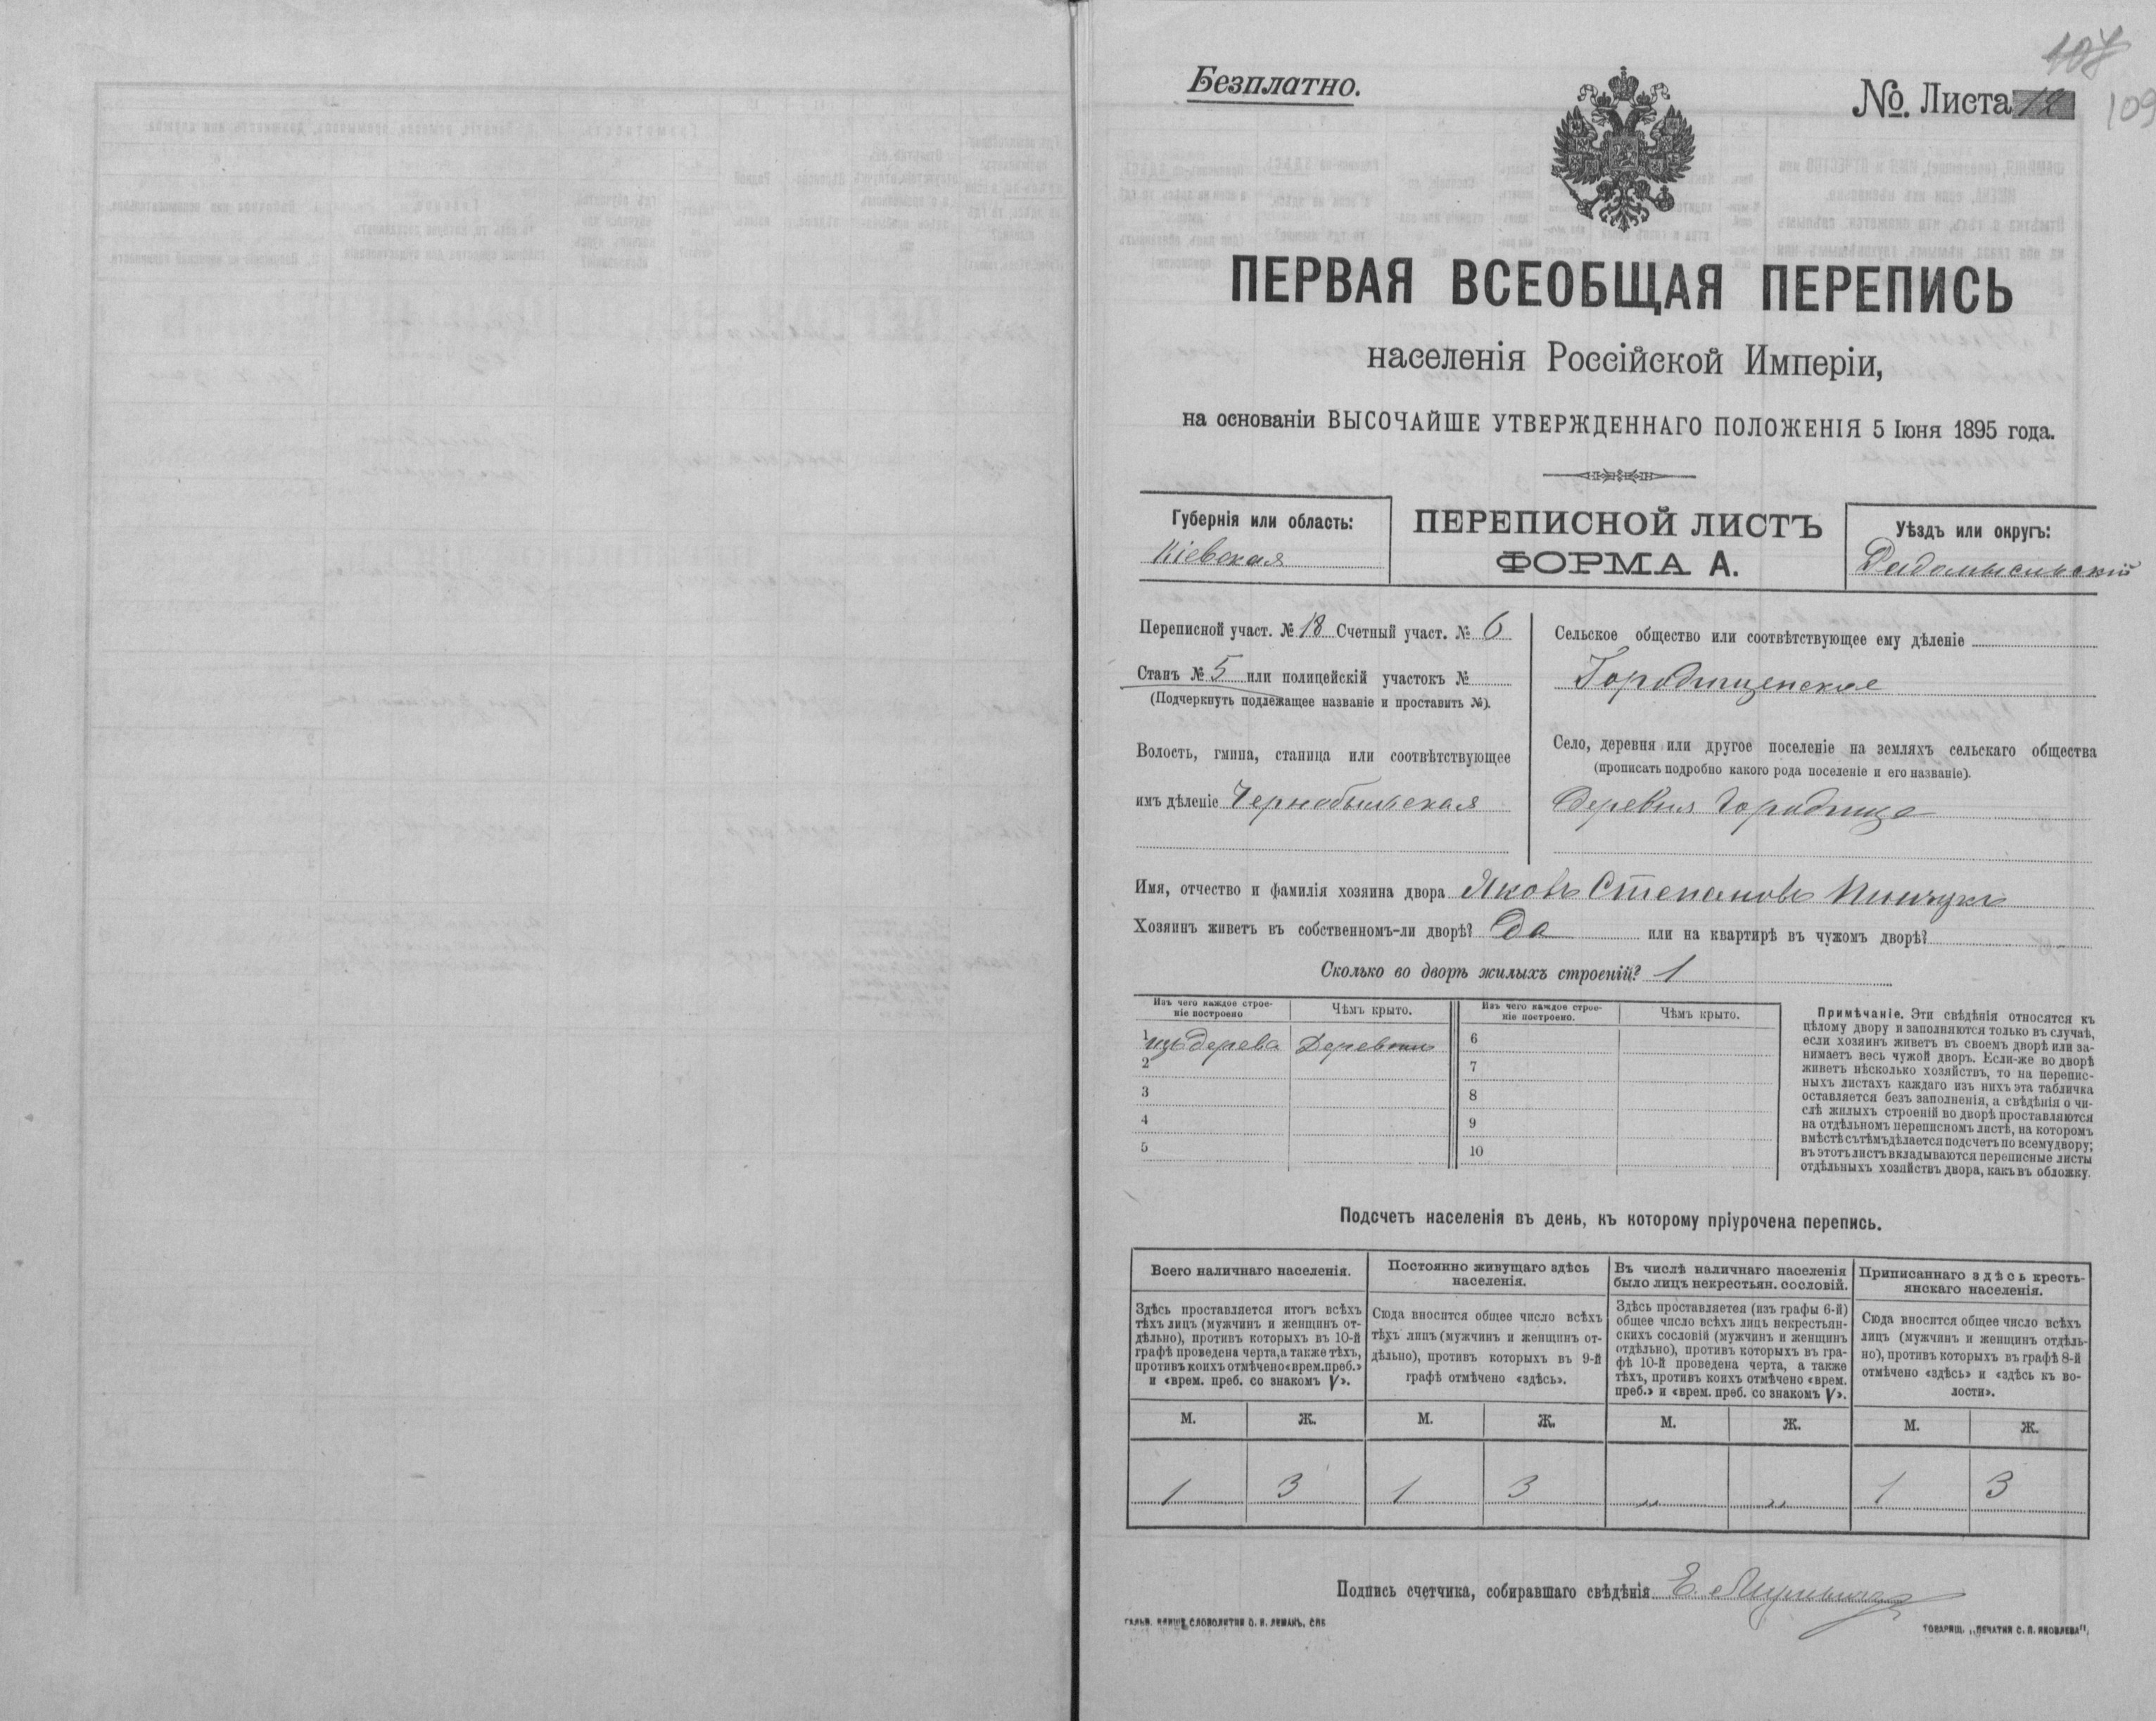 Безплатно.
№ Листа 12
109
ПЕРВАЯ ВСЕОБЩАЯ ПЕРЕПИСЬ
населенія Россійской Имперіи,
на основаніи ВЫСОЧАЙШЕ УТВЕРЖДЕННАГО ПОЛОЖЕНІЯ 5 Іюня 1895 года.
Губернія или область:
Кіевская
ПЕРЕПИСНОЙ ЛИСТЪ
ФОРМА А.
Уѣздъ или округъ:
Радомысльскій
Переписной участ. № 18 Счетный участ. № 6
Станъ № 5 или полицейскій участокъ №
(Подчеркнуть подлежащее названіе и проставить №).
Волость, гмина, станица или соотвѣтствующее
имъ дѣленіе Чернобыльская
Сельское общество или соотвѣтствующее ему дѣленіе
Городищенское
Село, деревня или другое поселеніе на земляхъ сельскаго общества
(прописать подробно какого рода поселеніе и его названіе).
Деревня Городище
Имя, отчество и фамилія хозяина двора Яковъ Степановъ Пинчукъ
Хозяинъ живетъ въ собственномъ-ли дворѣ? Да или на квартирѣ въ чужомъ дворѣ?
Сколько во дворѣ жилыхъ строеній? 1
Изъ чего каждое строе-
ніе построено
Чѣмъ крыто.
Изъ чего каждое строе-
ніе построено.
Чѣмъ крыто.
1 изъ дерева Деревомъ
2
3
4
5
6
7
8
9
10
Примѣчаніе. Эти свѣдѣнія относятся къ
цѣлому двору и заполняются только въ случаѣ,
если хозяинъ живетъ въ своемъ дворѣ или за-
нимаетъ весь чужой дворъ. Если-же во дворѣ
живетъ нѣсколько хозяйствъ, то на перепис-
ныхъ листахъ каждаго изъ нихъ эта табличка
оставляется безъ заполненія, а свѣдѣнія о чи-
слѣ жилыхъ строеній во дворѣ проставляются
на отдѣльномъ переписномъ листѣ, на которомъ
вмѣстѣ съ тѣмъ дѣлается подсчетъ по всему двору;
въ этотъ листъ вкладываются переписные листы
отдѣльныхъ хозяйствъ двора, какъ въ обложку.
Подсчетъ населенія въ день, къ которому пріурочена перепись.
Всего наличнаго населенія.
Здѣсь проставляется итогъ всѣхъ
тѣхъ лицъ (мужчинъ и женщинъ от-
дѣльно), противъ которыхъ въ 10-й
графѣ проведена черта, а также тѣхъ,
противъ коихъ отмѣчено «врем. преб.»
и «врем. преб. со знакомъ V».
Постоянно живущаго здѣсь
населенія.
Сюда вносится общее число всѣхъ
тѣхъ лицъ (мужчинъ и женщинъ от-
дѣльно), противъ которыхъ въ 9-й
графѣ отмѣчено «здѣсь».
Въ числѣ наличнаго населенія
было лицъ некрестьян. сословій.
Здѣсь проставляется (изъ графы 6-й)
общее число всѣхъ лицъ некрестьян-
скихъ сословій (мужчинъ и женщинъ
отдѣльно), противъ которыхъ въ гра-
фѣ 10-й проведена черта, а также
тѣхъ, противъ коихъ отмѣчено «врем.
преб.» и «врем. преб. со знакомъ V».
Приписаннаго здѣсь кресть-
янскаго населенія.
Сюда вносится общее число всѣхъ
лицъ (мужчинъ и женщинъ отдѣль-
но), противъ которыхъ въ графѣ 8-й
отмѣчено «здѣсь» и «здѣсь къ во-
лости».
М. Ж. М. Ж. М. Ж. М. Ж.
1 3 1 3 „ „ 1 3
Подпись счетчика, собиравшаго свѣдѣнія Е.
ГАЛЬВ. КЛИШЕ СЛОВОЛИТНИ О. И. ЛЕМАНЪ, СПБ
ТОВАРИЩ. „ПЕЧАТНЯ С. П. ЯКОВЛЕВА".